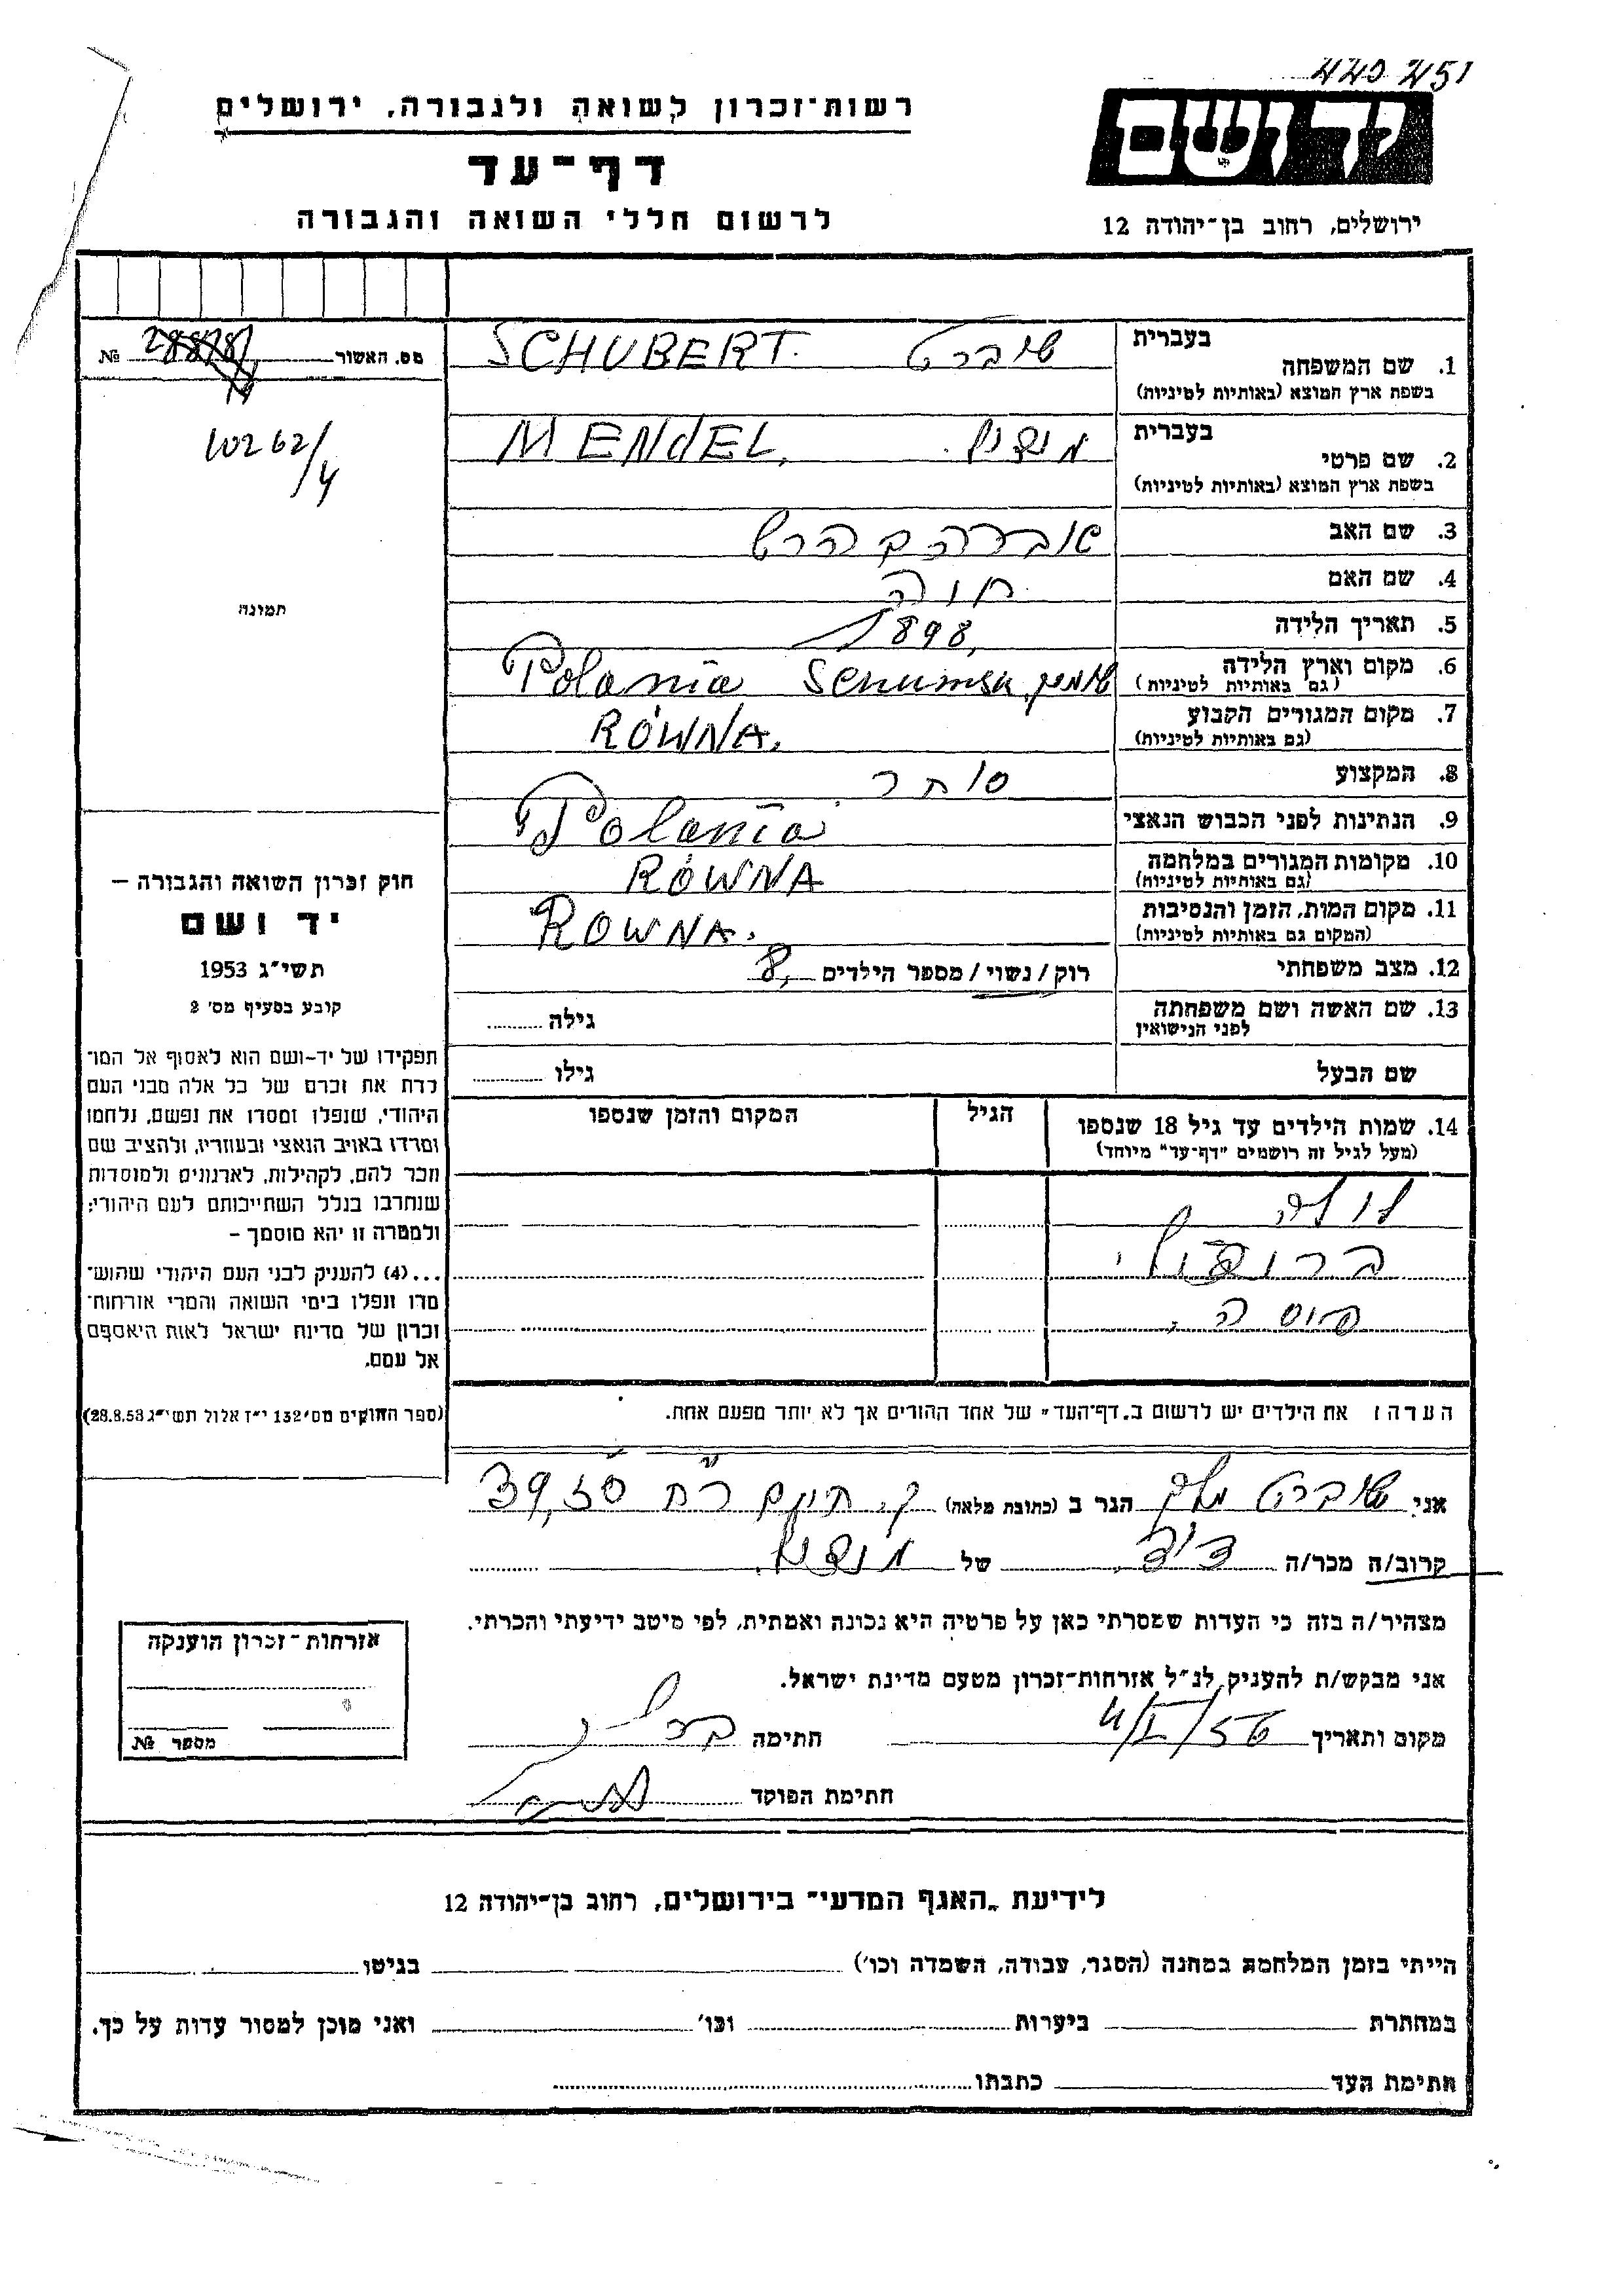 440 451
רשות־זכרון לשואה ולגבורה, ירושלים
יד ושם
דף־עד
לרשום חללי השואה והגבורה
ירושלים, רחוב בן־יהודה 12
מס. האשור № 28878
10262/4
תמונה
בעברית
1. שם המשפחה שוברט SCHUBERT.
בשפת ארץ המוצא (באותיות לטיניות)
בעברית
2. שם פרטי מנדל MENdEL,
בשפת ארץ המוצא (באותיות לטיניות)
3. שם האב
4. שם האם חוה
5. תאריך הלידה 1898,
6. מקום וארץ הלידה Polania
(גם באותיות לטיניות)
7. מקום המגורים הקבוע RÓWNA.
(גם באותיות לטיניות)
8. המקצוע סוחר
9. הנתינות לפני הכבוש הנאצי Polania
10. מקומות המגורים במלחמה RÓWNA
(גם באותיות לטיניות)
11. מקום המות, הזמן והנסיבות ROWNA.
(המקום גם באותיות לטיניות)
12. מצב משפחתי רוק / נשוי / מספר הילדים 8,
13. שם האשה ושם משפחתה גילה
לפני הנישואין
שם הבעל גילו
חוק זכרון השואה והגבורה –
יד ושם
תשי״ג 1953
קובע בסעיף מס׳ 2
תפקידו של יד-ושם הוא לאסוף אל המו־
לדת את זכרם של כל אלה מבני העם
היהודי, שנפלו ומסרו את נפשם, נלחמו
ומרדו באויב הנאצי ובעוזריו, ולהציב שם
וזכר להם, לקהילות, לארגונים ולמוסדות
שנחרבו בגלל השתייכותם לעם היהודי;
ולמטרה זו יהא מוסמך –
...(4) להעניק לבני העם היהודי שהוש־
מדו ונפלו בימי השואה והמרי אזרחות־
זכרון של מדינת ישראל לאות היאספם
אל עמם.
(ספר החוקים מס׳ 132 י״ז אלול תשי״ג 28.8.53)
14. שמות הילדים עד גיל 18 שנספו הגיל המקום והזמן שנספו
(מעל לגיל זה רושמים "דף-עד" מיוחד)
הערה: את הילדים יש לרשום ב„דף־העד" של אחד ההורים אך לא יותר מפעם אחת.
אני שוברט הגר ב (כתובת מלאה) ק. חיים רח 39,50
קרוב/ה מכר/ה דוד של מנדל
מצהיר/ה בזה כי העדות שמסרתי כאן על פרטיה היא נכונה ואמתית, לפי מיטב ידיעתי והכרתי.
אני מבקש/ת להעניק לנ״ל אזרחות־זכרון מטעם מדינת ישראל.
מקום ותאריך חתימה
חתימת הפוקד
אזרחות־זכרון הוענקה
מספר №
לידיעת „האגף המדעי" בירושלים, רחוב בן־יהודה 12
הייתי בזמן המלחמה במחנה (הסגר, עבודה, השמדה וכו׳) בגיטו
במחתרת ביערות וכו׳ ואני מוכן למסור עדות על כך.
חתימת העד כתבתו